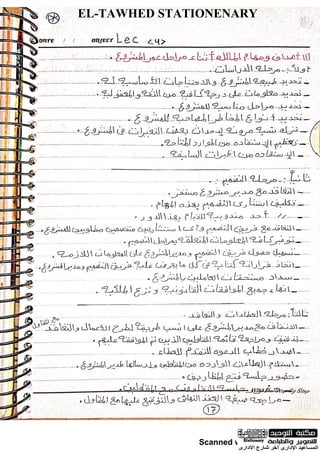 EL-TAWHED STATIONENARY
DATE / / OBJECT Lec <4>
[1] أهداف ومهام المالك أثناء مراحل عمر المشروع.
أولاً: مرحلة الدراسات.
- تحديد طبيعة المشروع والاحتياجات الأساسية له.
- تحديد معلومات على درجة كافية من الثقة والمعقولية.
- تحديد مراحل مناسبة للمشروع.
- تحديد أنواع المخاطر المصاحبة للمشروع.
- ترك نسبة مرونة لإحداث بعض التغيرات فى المشروع.
- تعظيم الاستفادة من الموارد المتاحة.
- الاستفادة من الخبرات السابقة.
ثانياً: مرحلة التصميم.
- التعاقد مع مدير مشروع مستقر.
- تكليف استشارى التصميم بهذه المهام.
- // أحد مندوبية للقيام بهذا الدور.
- التعاقد مع فريق التصميم وأى استشاريين متخصصين مطلوبين للمشروع.
- توفير كافة المعلومات المتعلقة بمراحل التصميم.
- تسهيل حصول فريق التصميم ومدير المشروع على المعلومات اللازمة.
- اتخاذ قراراته كتابية فى كل ما يعرض عليه فريق التصميم ومدير المشروع.
- سداد مستحقات العاملين بالمشروع.
- إنهاء جميع الموافقات القانونية ونزع الملكية.
ثالثاً: مرحلة العطاءات والتعاقد.
- الاتفاق مع مدير المشروع على أنسب طريقة لطرح الأعمال والتعاقد
- تدقيق ومراجعة قائمة المقاولين الذين تم الموافقة عليهم.
- إصدار خطاب الدعوة للتقدم للعطاء.
- استلام العطاءات الواردة من المقاولين وإرسالها لمدير المشروع.
- حضور جلسة فتح المظاريف.
- مراجعة صيغة العقد النهائى والتوقيع عليها مع المقاول.
17
Scanned
مكتبة التوحيد
للتصوير والطباعة
المساعيد الإدارى آخر شارع الإدارى